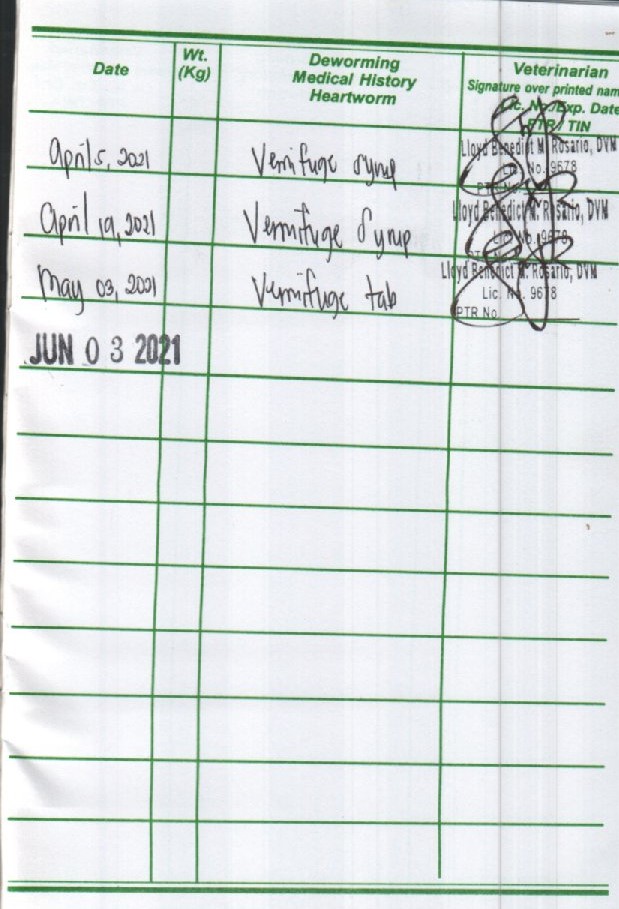 Date
Wt.
(Kg)
Deworming
Medical History
Heartworm
Veterinarian
Signature over printed nam
Lic. No./Exp. Date
PTR / TIN
April 5, 2021
Vermifuge syrup
Lloyd Benedict M. Rosario, DVM
Lic. No. 9678
April 19, 2021
Vermifuge Syrup
Lloyd Benedict M. Rosario, DVM
Lic. No. 9678
May 03, 2021
Vermifuge tab
Lloyd Benedict M. Rosario, DVM
Lic. No. 9678
PTR No
JUN 03 2021